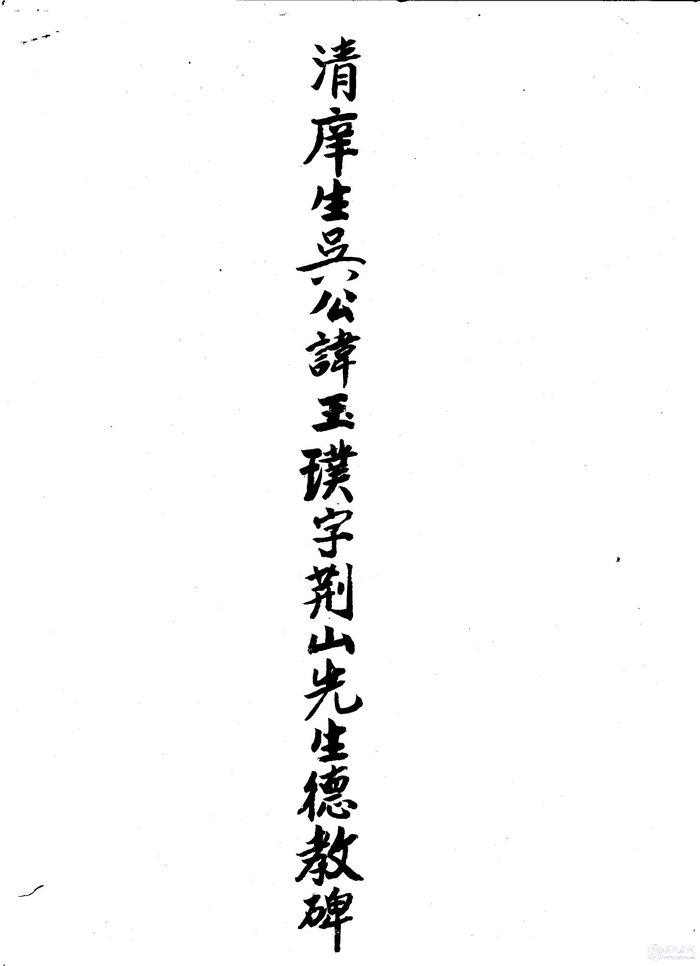 清庠生吳公諱玉璞字荆山先生德教碑